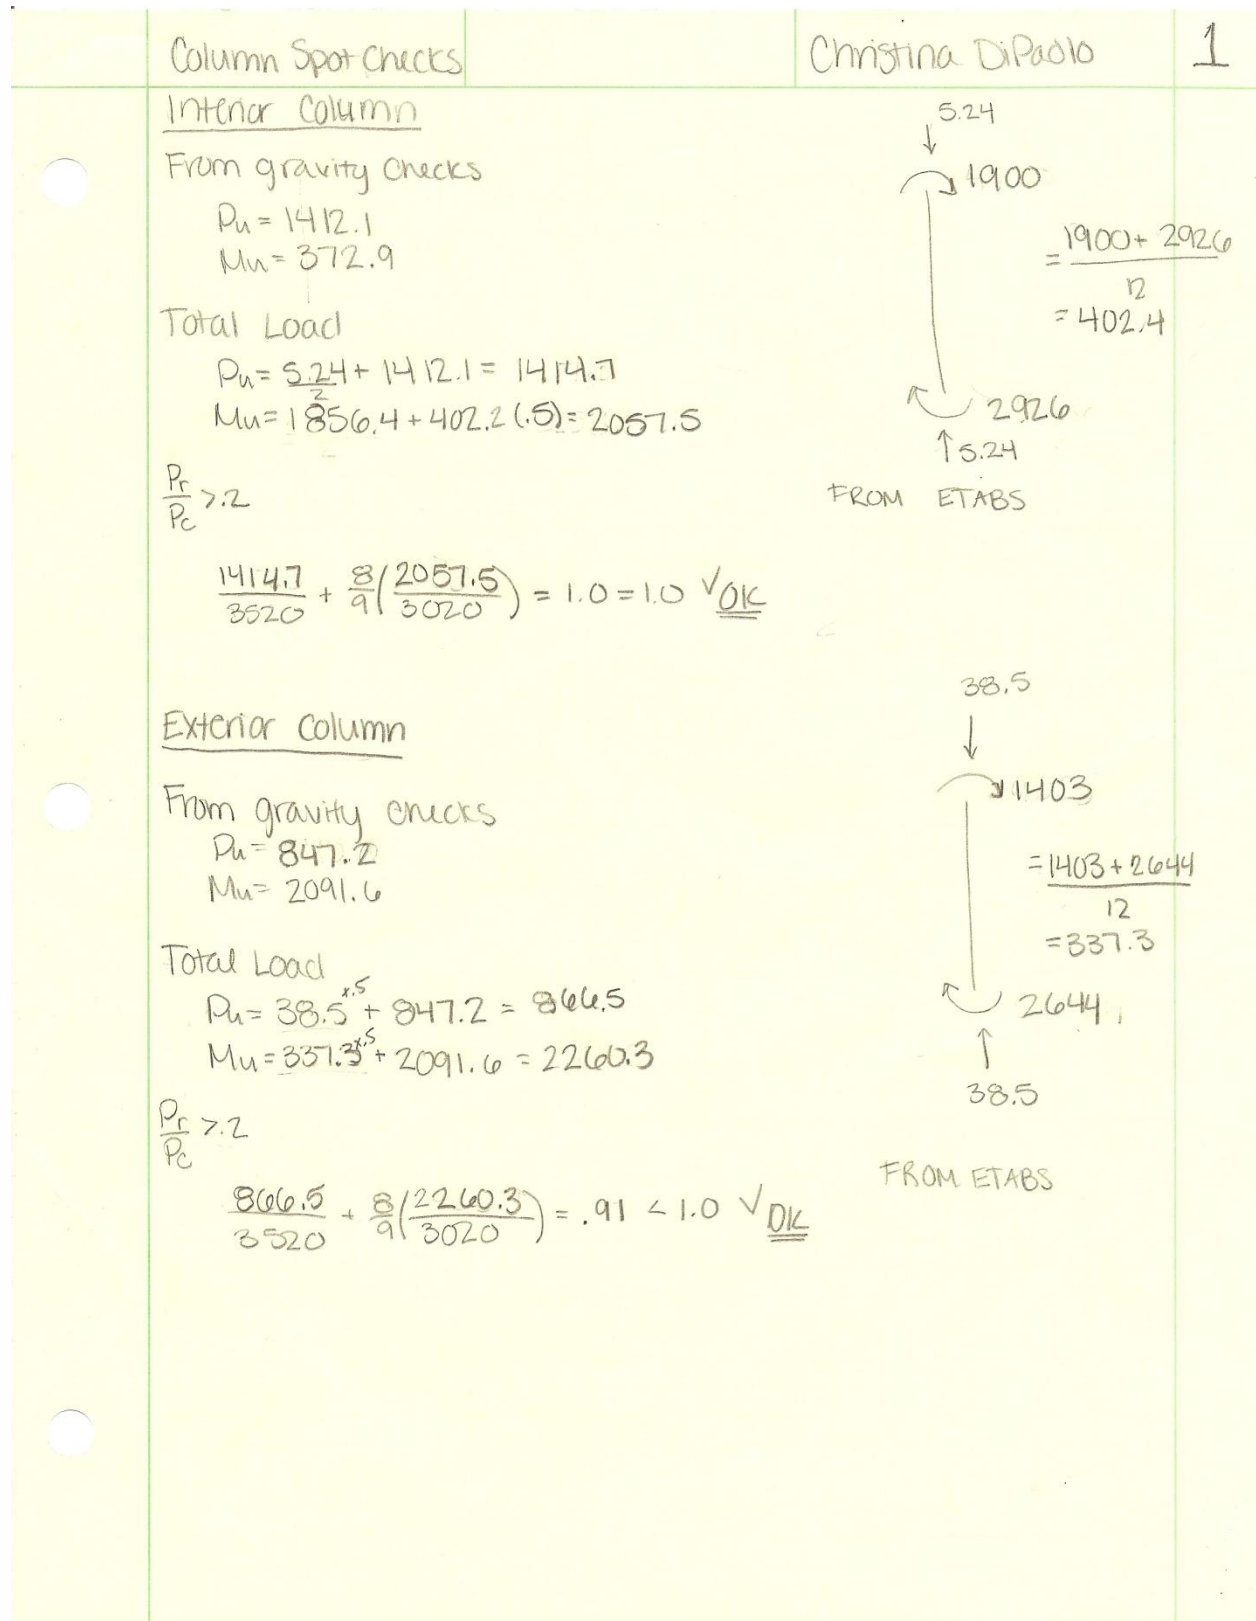 Column Spot Checks
Christina DiPaolo
1
Interior Column
From gravity checks
Pu = 1412.1
Mu = 372.9
Total Load
Pu = 5.24/2 + 1412.1 = 1414.7
Mu = 1856.4 + 402.2 (.5) = 2057.5
Pr/Pc > .2
1414.7/3520 + 8/9(2057.5/3020) = 1.0 = 1.0 √ OK
5.24
↓
1900
= 1900 + 2926
12
= 402.4
2926
↑ 5.24
FROM ETABS
Exterior Column
From gravity checks
Pu = 847.2
Mu = 2091.6
Total Load
Pu = 38.5 x.5 + 847.2 = 866.5
Mu = 337.3 x.5 + 2091.6 = 2260.3
Pr/Pc > .2
866.5/3520 + 8/9(2260.3/3020) = .91 < 1.0 √ OK
38.5
↓
1403
= 1403 + 2644
12
= 337.3
2644
↑
38.5
FROM ETABS